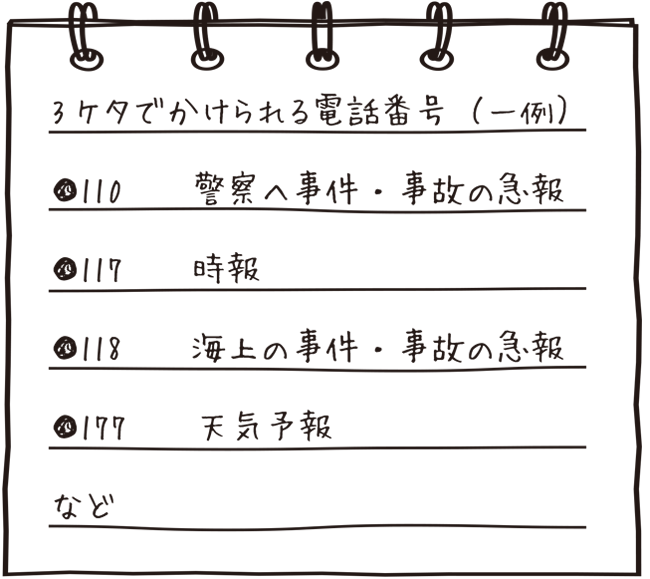 3ケタでかけられる電話番号（一例）
●110　警察へ事件・事故の急報
●117　時報
●118　海上の事件・事故の急報
●177　天気予報
など